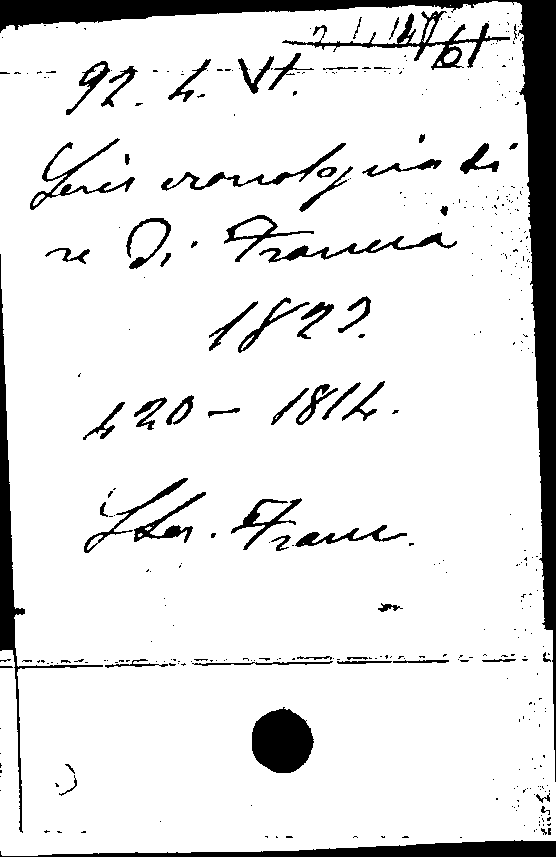 61
92. 4. VI.
Serie cronologica di
re Di Francia
1822.
420 - 1814.
Franc.